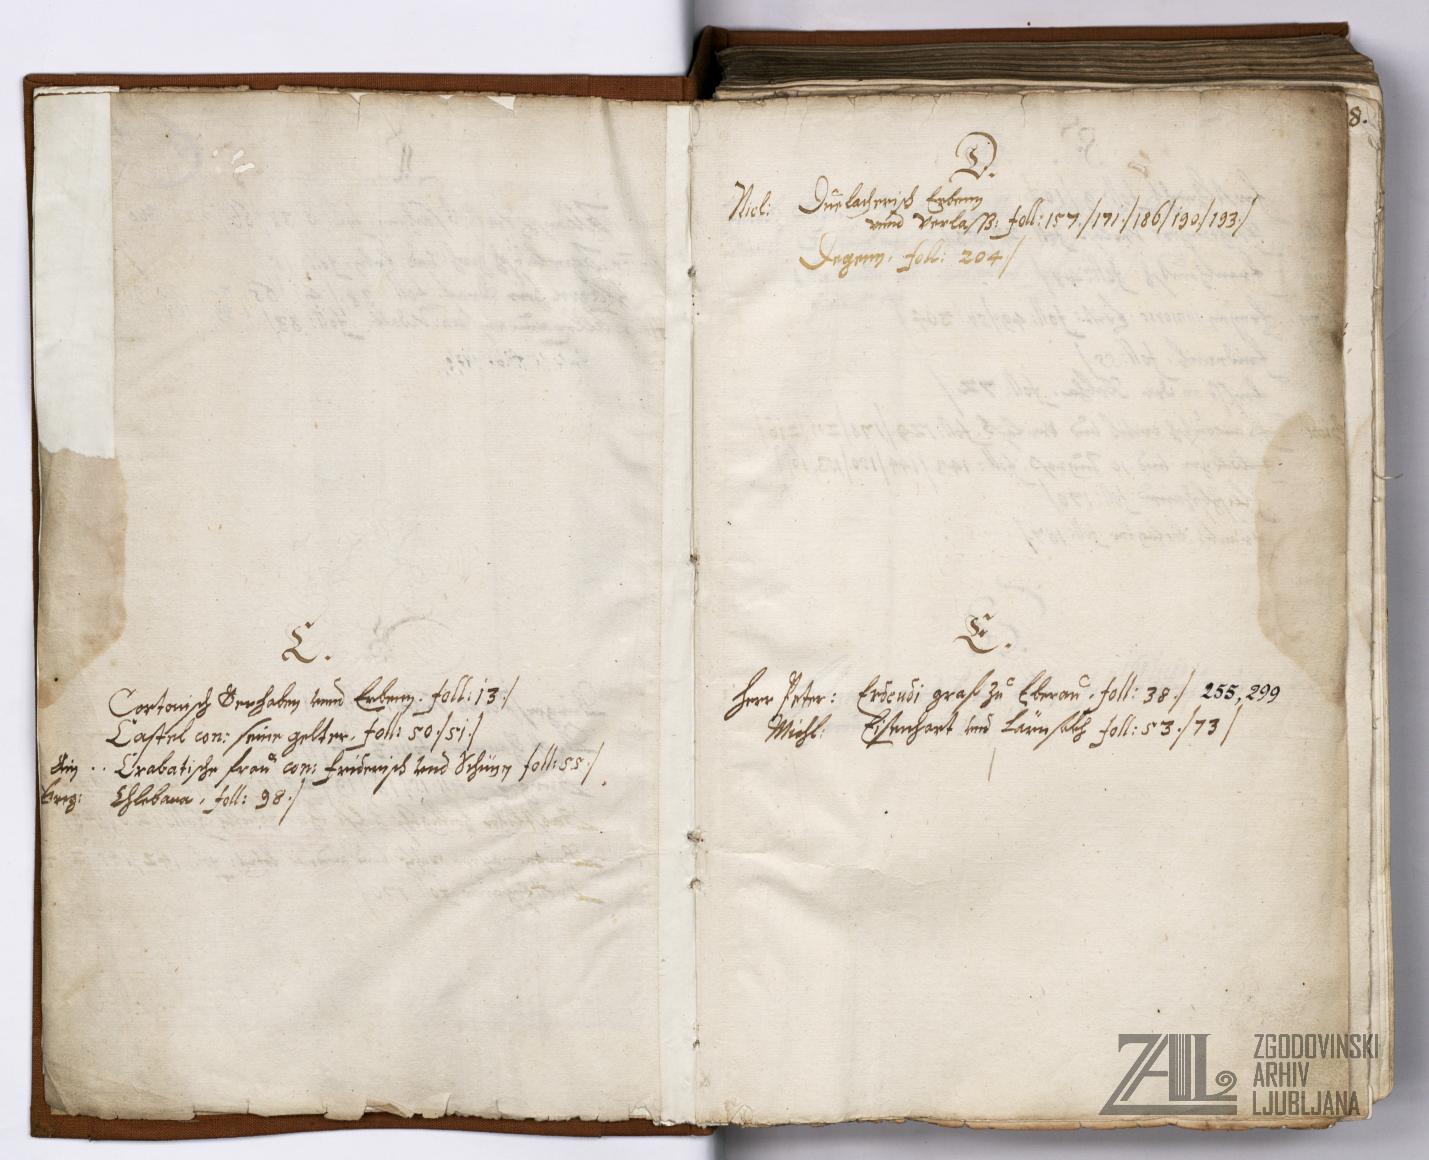 C.
Cortonisch Gerhaben vnnd Erbenn. foll: 13./
Castel con: seine gelter. foll: 50./51./
Crabatische frau con: Friderich vnd Schünn foll: 55./
Greg: Chlebana. foll: 98./
8.
D.
Nicl: Düelacherisch Erbenn
vnnd verlaß: foll: 157./171./186/190./193./
Degenn. foll: 204./
E.
Herr Peter: Erdeudi graf zu Eberau. foll: 38./ 255, 299
Michl: Eisenhart vnd foll: 53./73/
ZAL
ZGODOVINSKI
ARHIV
LJUBLJANA